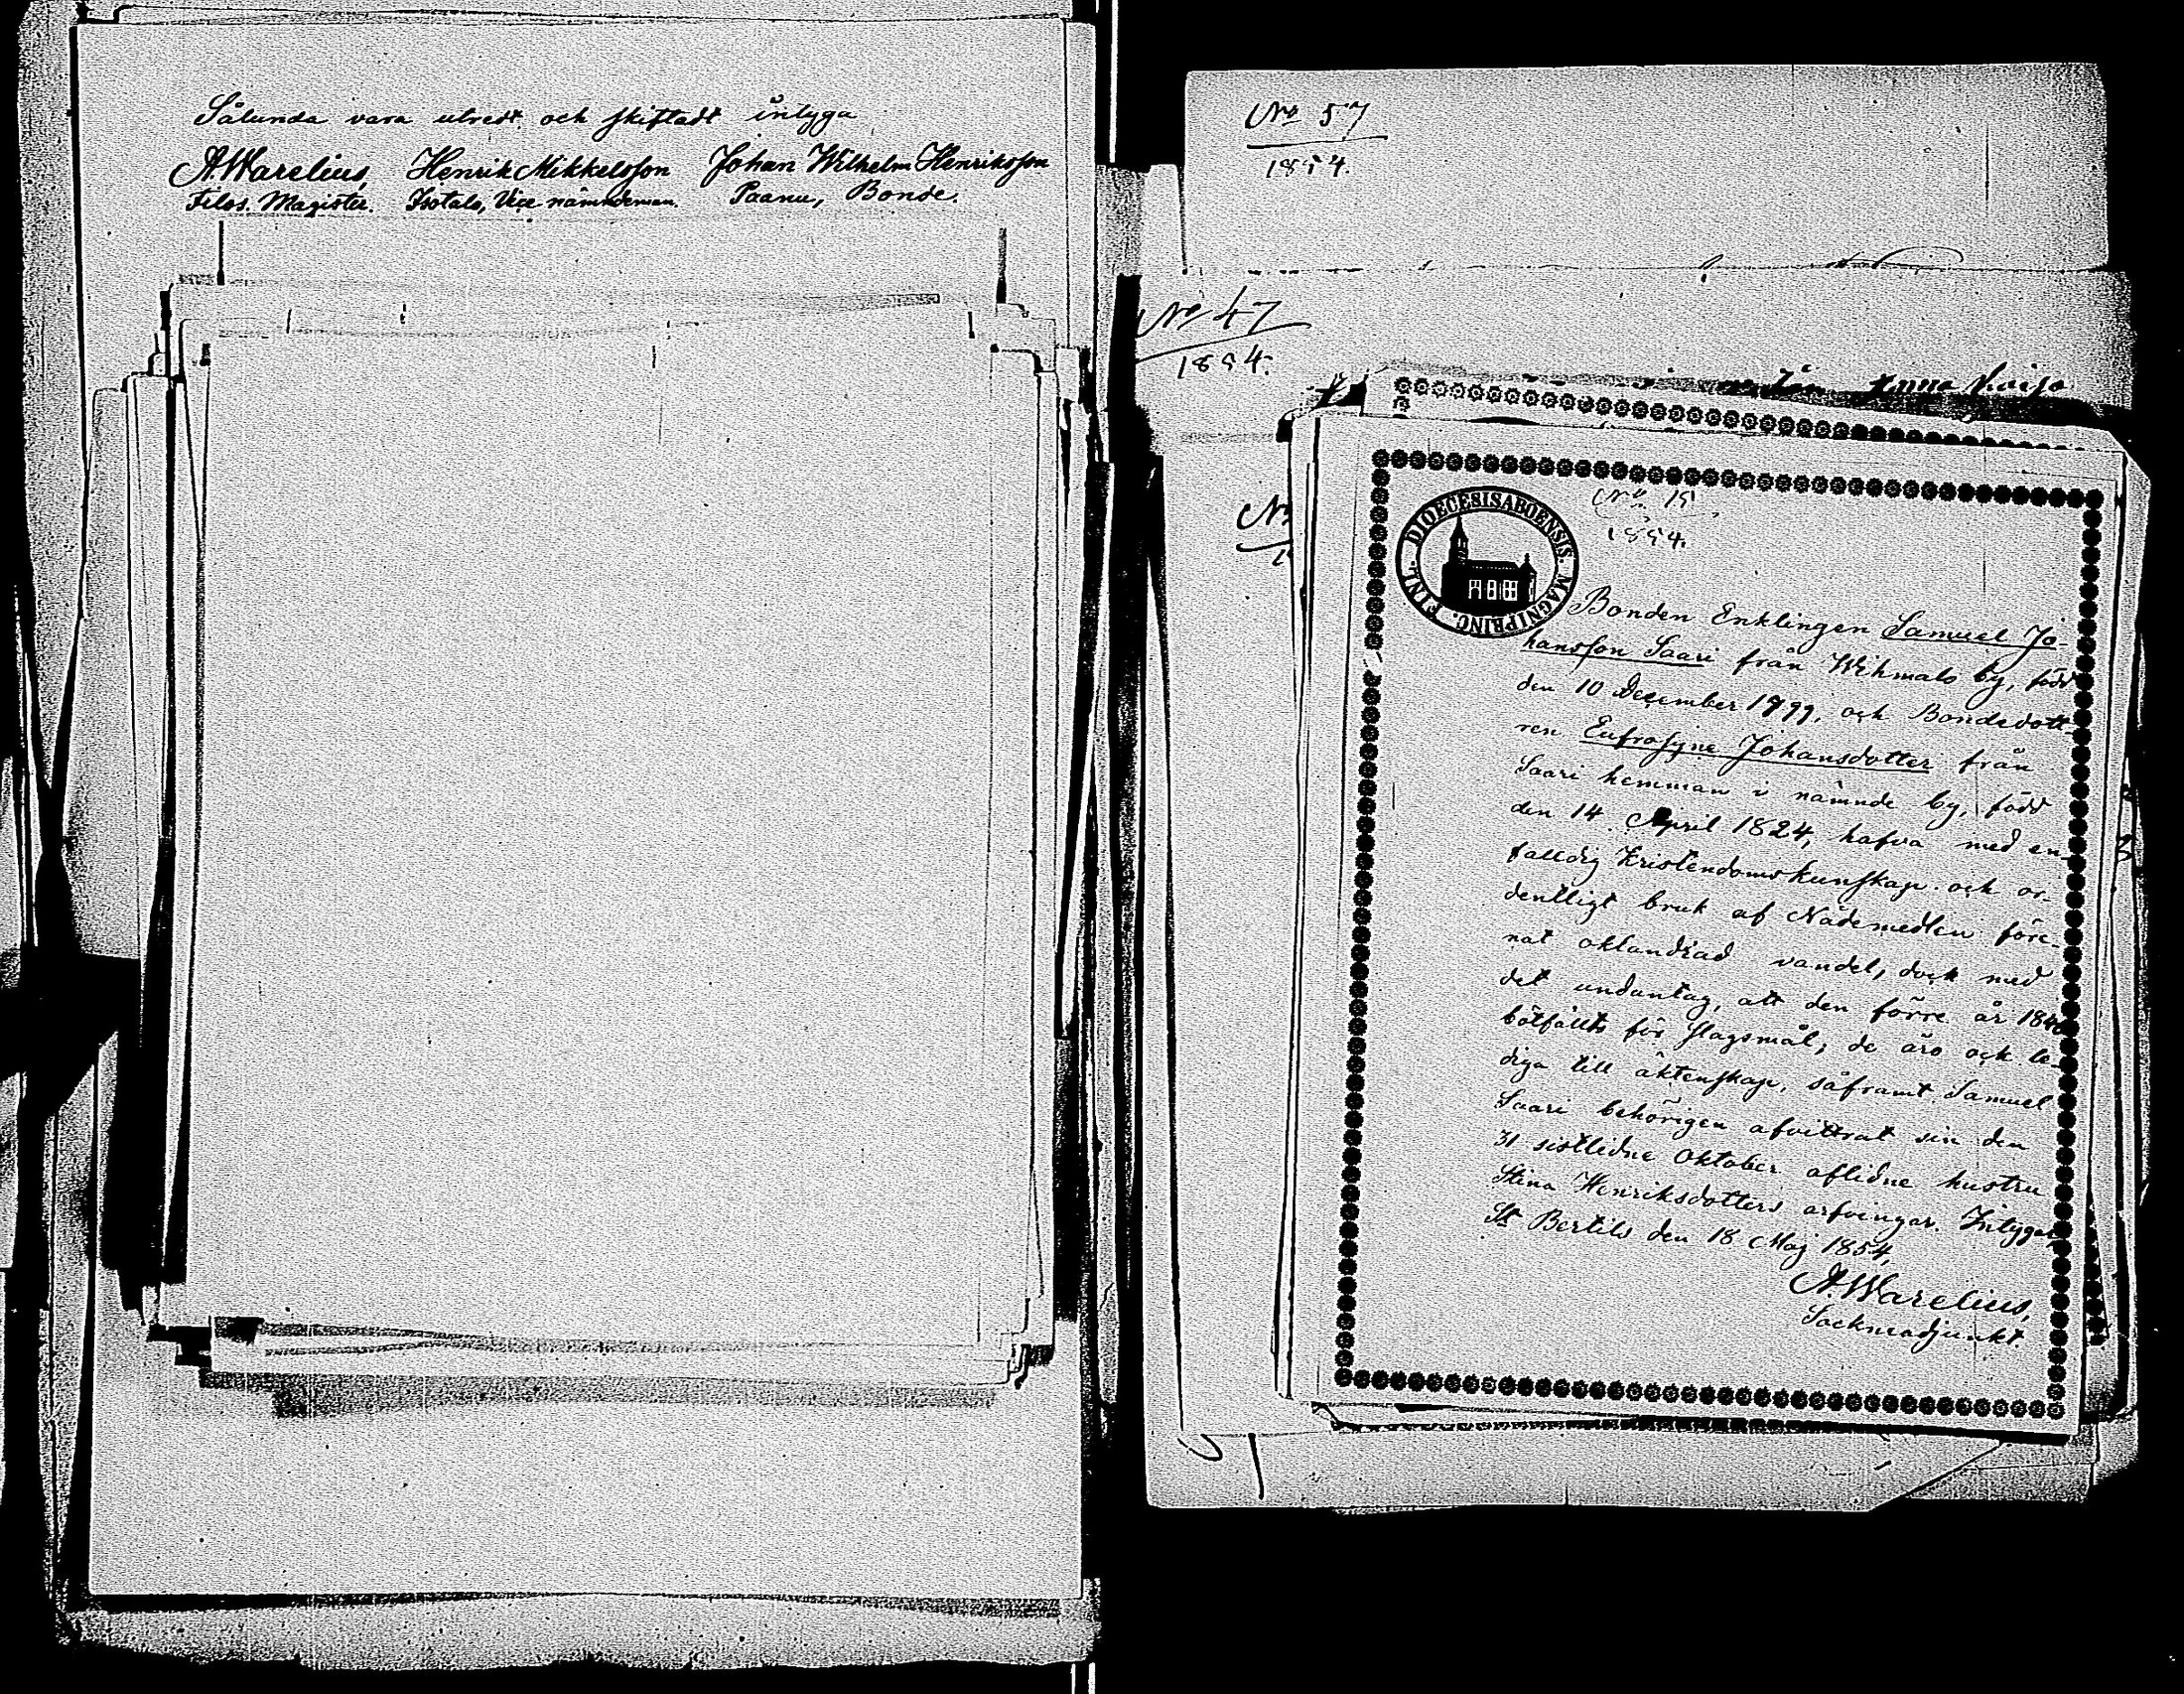 Sålunda vara utredt och skiftadt intyga
A. Warelius, Henrik Mikkelsson Johan Wilhelm Henriksson
Filos. Magister. Isotalo, Vice nämndeman. Paanu, Bonde.
No 57
1854.
No 47
1854.
Anna Kaisa
DIOECESIS ABOENSIS. MAGNI PRINC. FINL.
No 15
1854.
Bonden Enklingen Samuel Jo-
hansson Saari från Wihmalo by, född
den 10 December 1799, och Bondedott-
ren Eufrosyne Johansdotter från
Saari hemman i nämnde by, född
den 14 April 1824, hafva med en-
falldig Kristendomskunskap och or-
dentligt bruk af Nådemedlen före-
nat oklandrad vandel, dock med
det undantag, att den förre år 1840
bötfällts för slagsmål; de äro ock le-
diga till äktenskap, såframt Samuel
Saari behörigen afvittrat sin den
31 sistlidne Oktober aflidne hustru
Stina Henriksdotters arfvingar. Intygar,
St Bertils den 18 Maj 1854,
A. Warelius,
Sockneadjunkt.